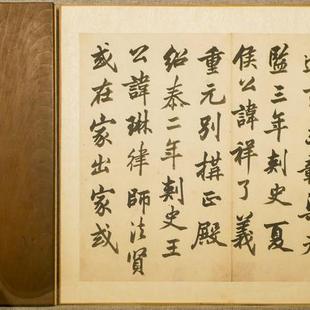 監三年刺史夏
侯公諱祥了義
重元別搆正殿
紹泰二年刺史王
公諱琳律師法賢
或在家出家或